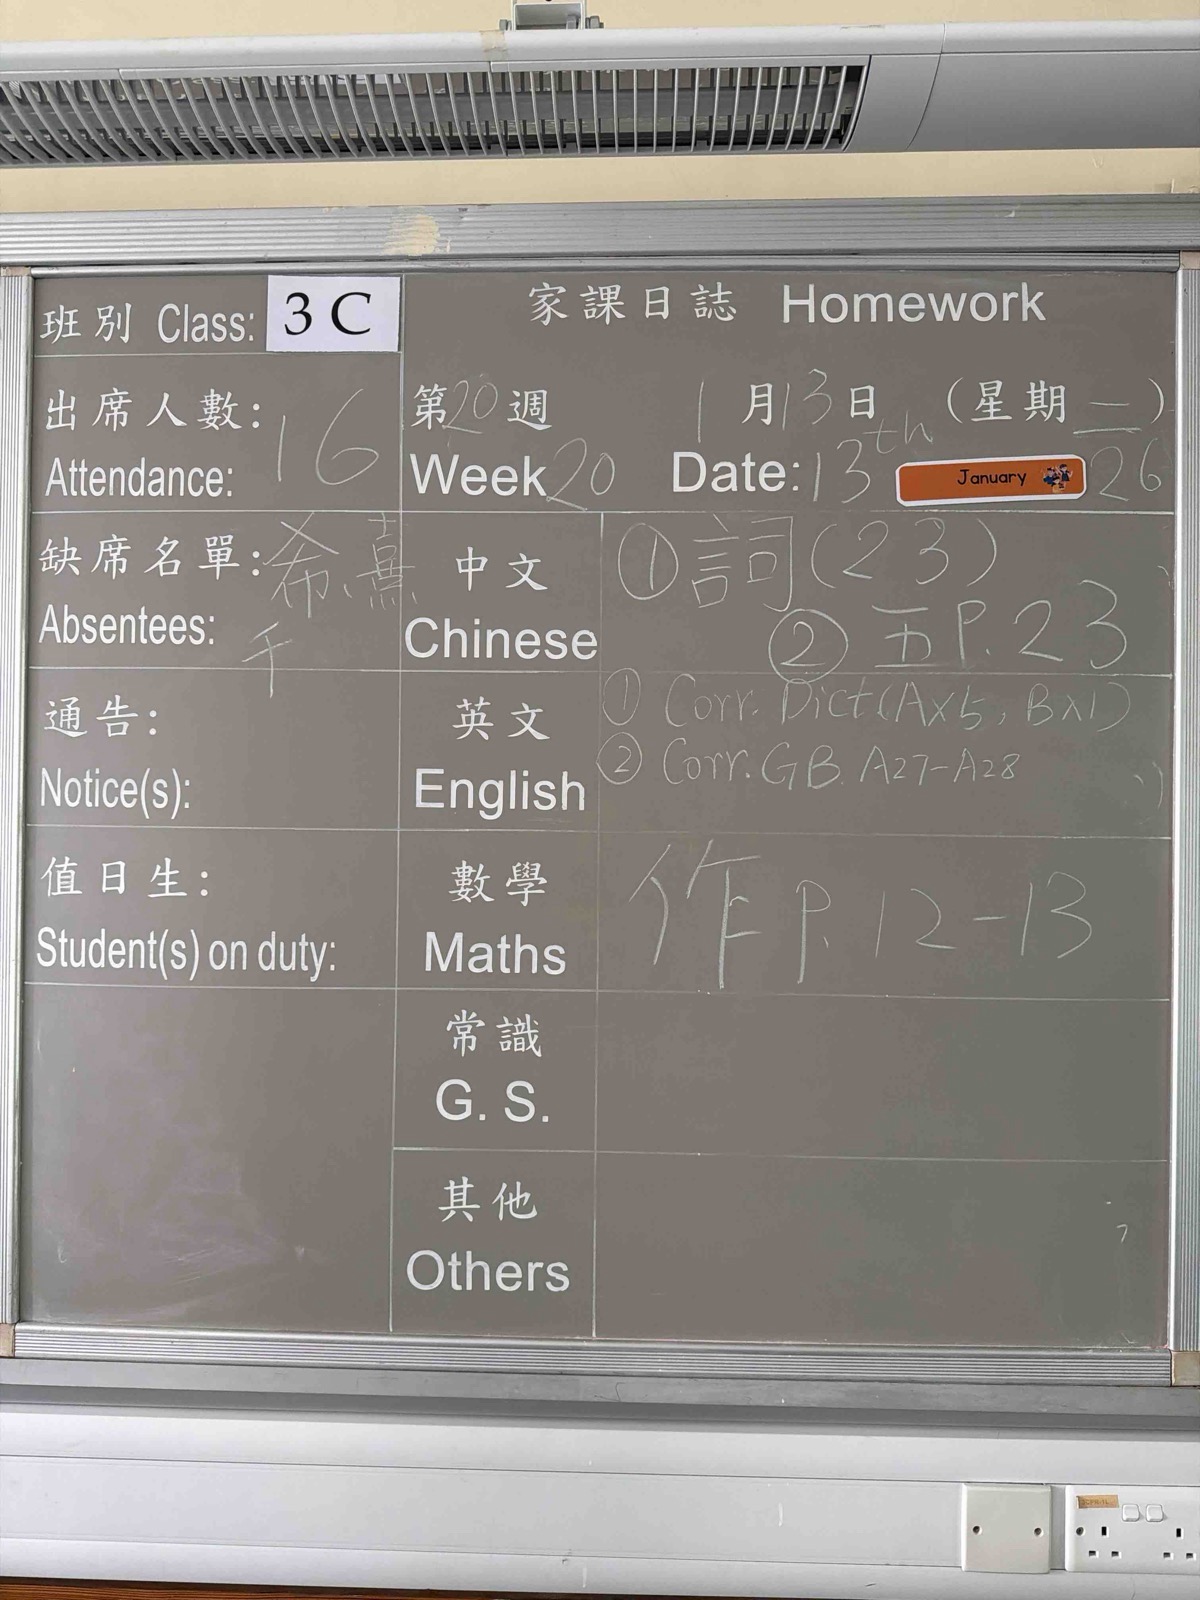 班別 Class: 3 C
家課日誌 Homework
出席人數: 16
Attendance:
第20週 1月13日 (星期二)
Week 20 Date: 13th January 26
缺席名單: 希,熹
Absentees: 千
中文
Chinese
①詞(23)
② 五P.23
通告:
Notice(s):
英文
English
① Corr. Dict(A×5, B×1)
② Corr. GB. A27-A28
值日生:
Student(s) on duty:
數學
Maths
作 P. 12-13
常識
G. S.
其他
Others